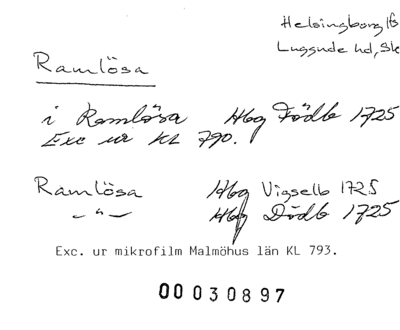 Helsingborg lfs
Luggude hd, Sk
Ramlösa
i Ramlösa Hbg Födb 1725
Exc ur KL 790.
Ramlösa Hbg Vigselb 1725
—"— Hbg Dödb 1725
Exc. ur mikrofilm Malmöhus län KL 793.
00030897